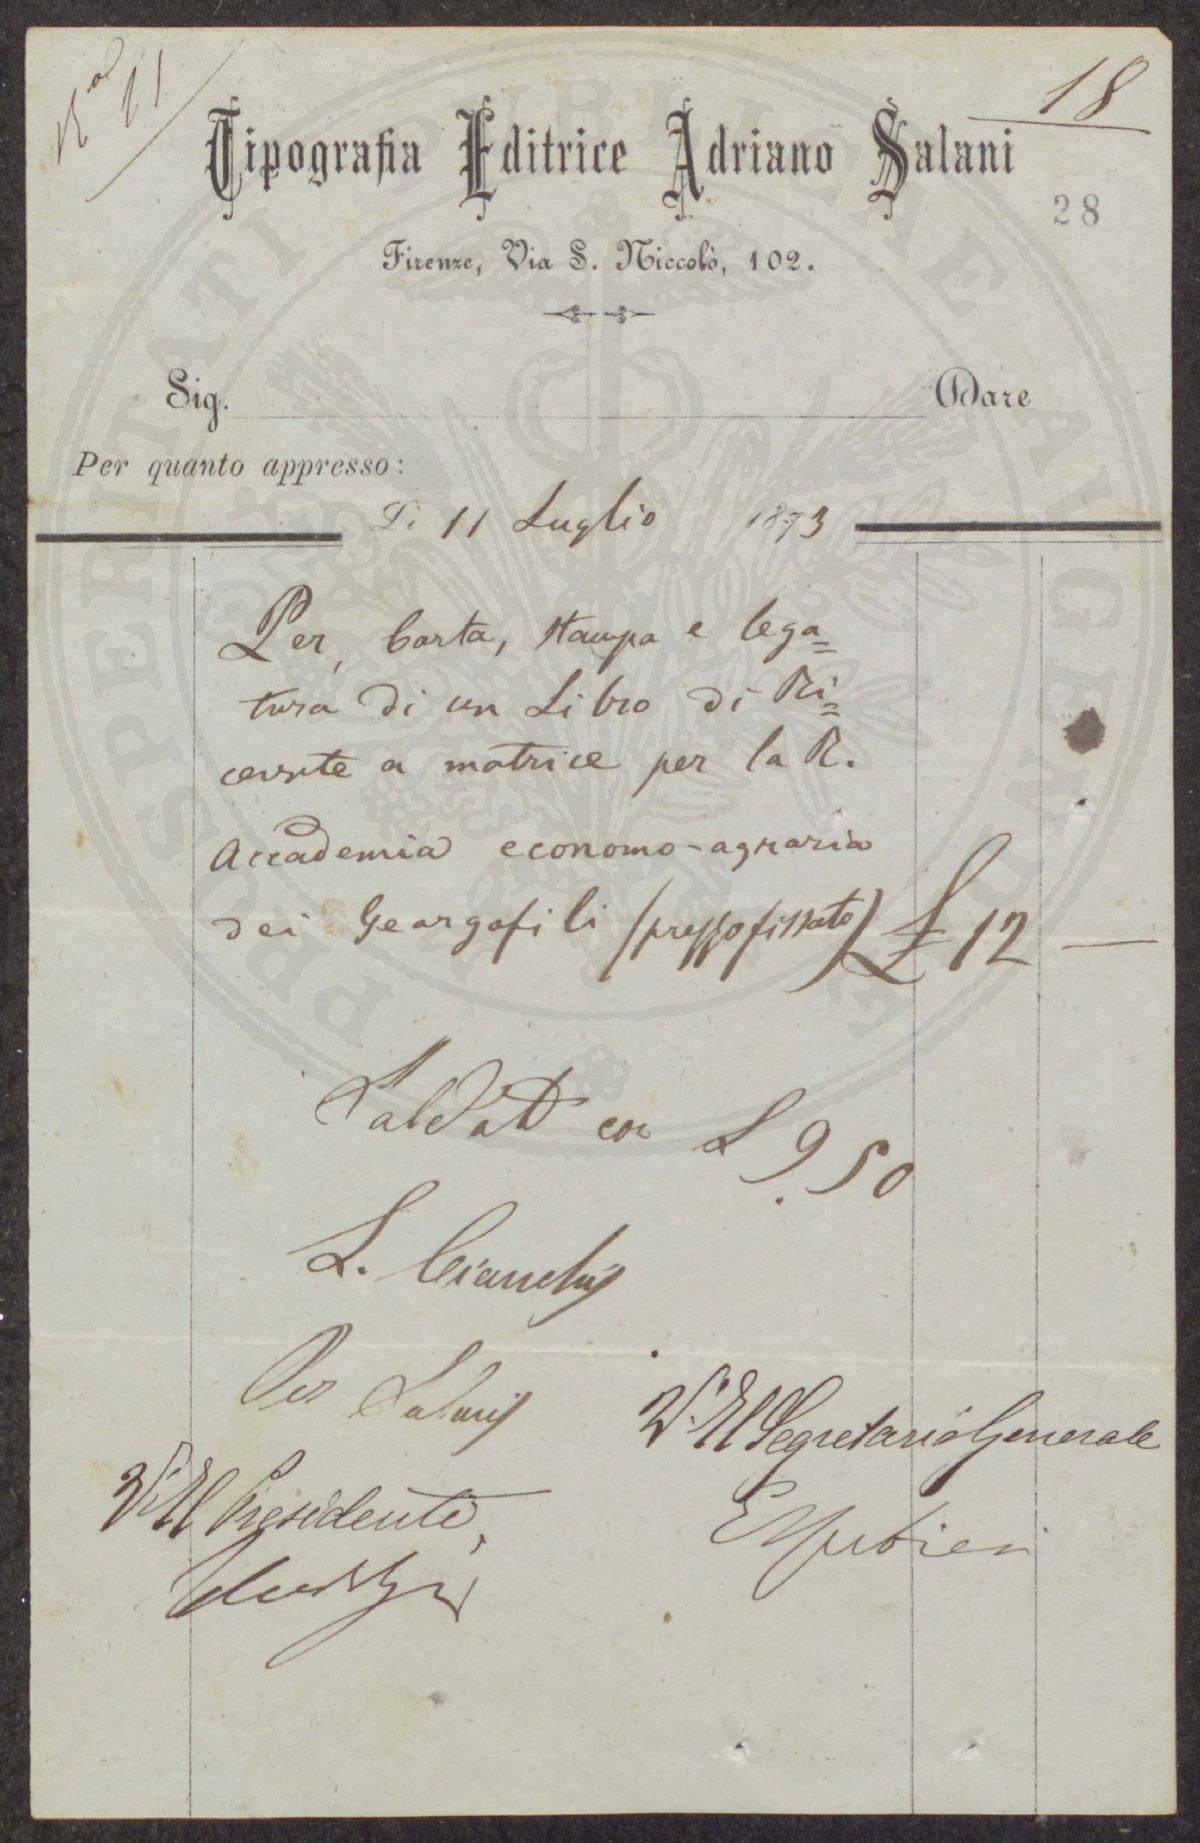 18
Tipografia Editrice Adriano Salani
28
Firenze, Via S. Niccolò, 102.
Sig. Dare
Per quanto appresso:
Li 11 Luglio 1873
Per Carta, stampa e lega=
tura di un Libro di Ri=
cevute a matrice per la R.
Accademia economo-agraria
dei Georgofili (prezzo fissato) £ 12 —
Saldato con £ 9.50
L. Bianchi
Per Salani
Vo Il Segretario Generale
Vo Il Presidente,
PROSPERITATI PUBLICAE AUGENDAE